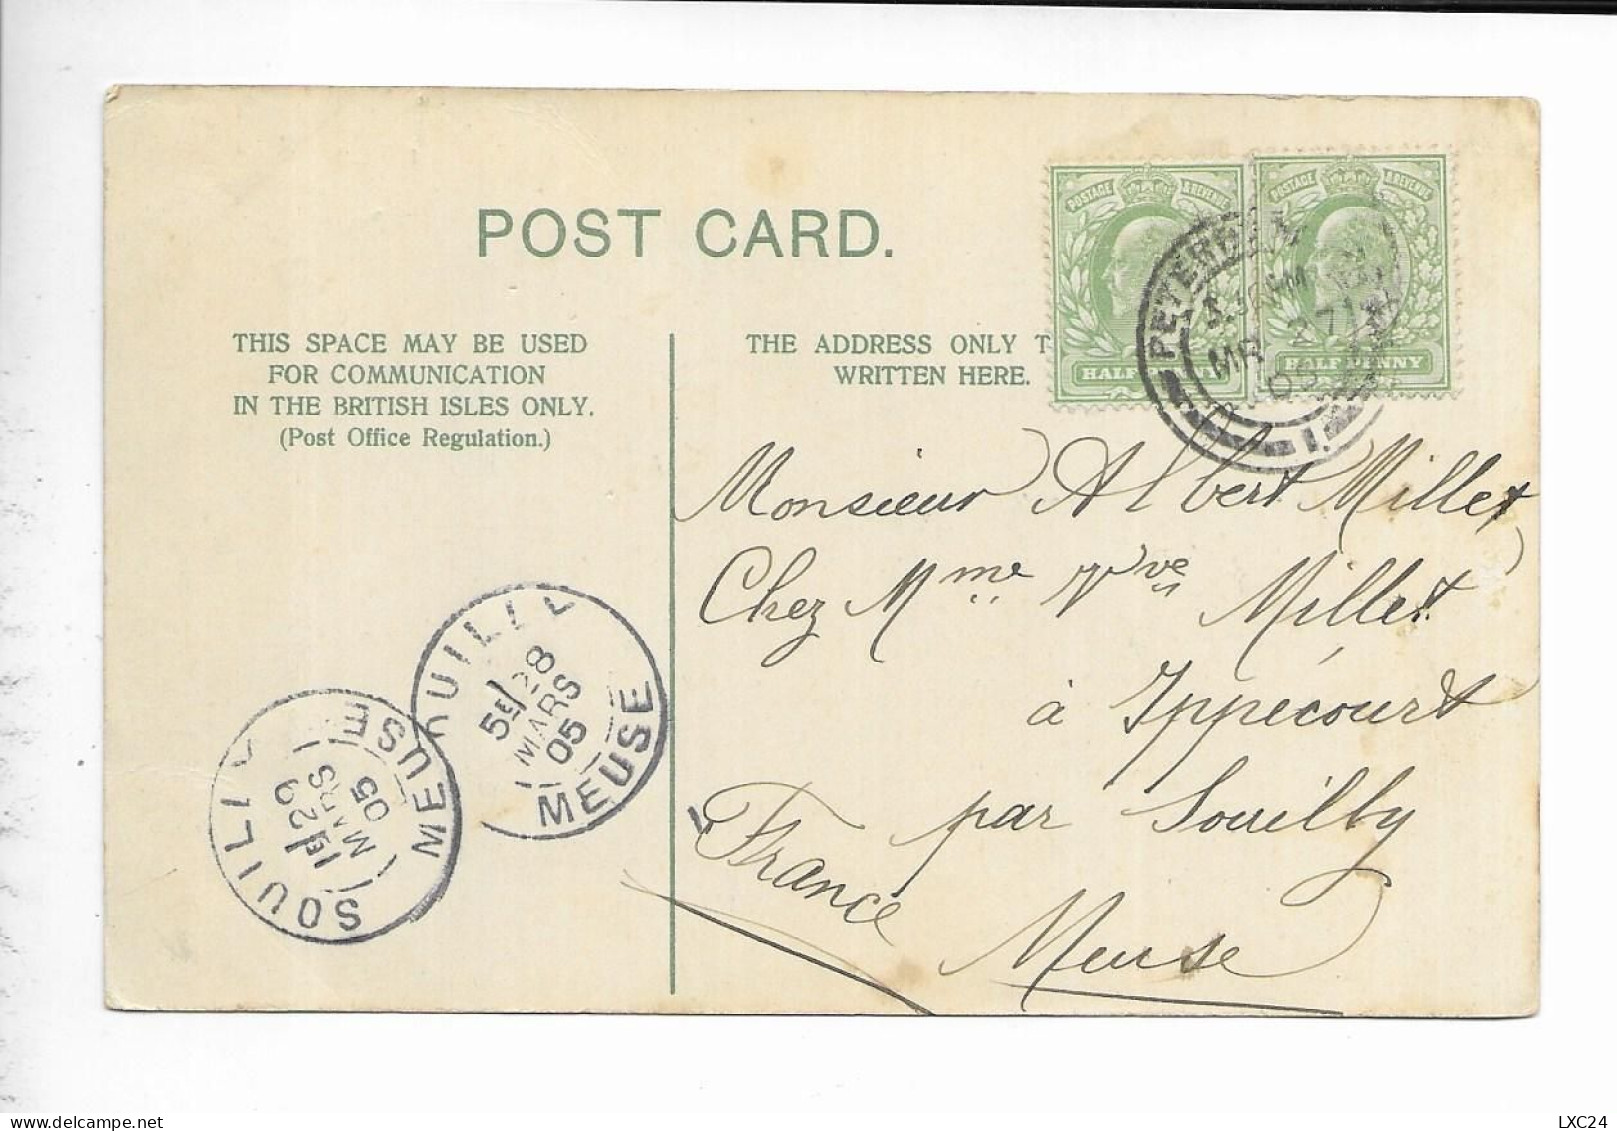 POST CARD.
THIS SPACE MAY BE USED
FOR COMMUNICATION
IN THE BRITISH ISLES ONLY.
(Post Office Regulation.)
THE ADDRESS ONLY T
WRITTEN HERE.
POSTAGE & REVENUE
HALF
POSTAGE & REVENUE
HALF PENNY
PETERBO
MR 27
05
1.
Monsieur Albert Millet
Chez Mme Vve Millet
à Ippécourt
par Souilly
France
Meuse
OUILLY
28
MARS
05
MEUSE
SOUILLY
29
MARS
05
MEUSE
LXC24